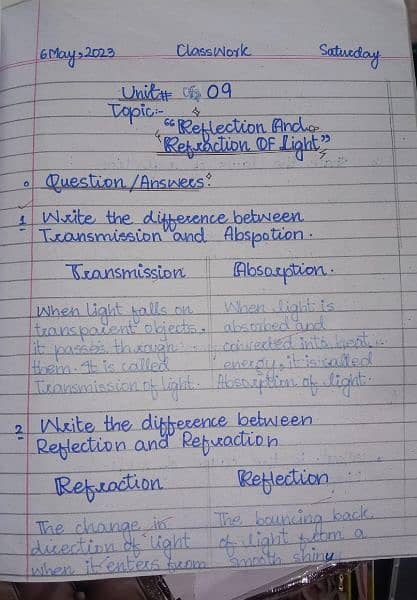 6 May, 2023 ClassWork Saturday
Unit# 09
Topic:-
"Reflection And
Refraction OF Light"
Question/Answers:
1 Write the difference between
Transmission and Abspotion.
Transmission Absorption.
When light falls on
transparent objects,
it passes through
them. It is called
Transmission of light.
When light is
absorbed and
converted into heat
energy, it is called
Absorption of light.
2 Write the difference between
Reflection and Refraction
Refraction Reflection
The change in
direction of light
when it enters from
The bouncing back
of light from a
smooth shiny